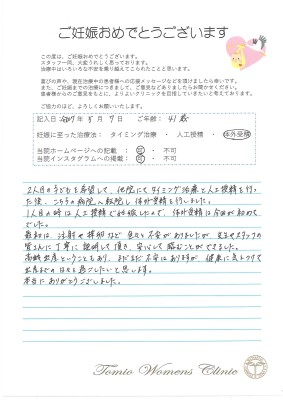 ご妊娠おめでとうございます
この度は、ご妊娠おめでとうございます。
スタッフ一同、大変うれしく思っております。
治療中はいろいろな不安を乗り越えてこられたことと思います。
喜びの声や、現在治療中の患者様への応援メッセージなどを頂けましたら幸いです。
また、ご妊娠までの治療につきまして、ご意見などありましたらお聞かせください。
患者様からのご意見をもとに、よりよいクリニックを目指していきたいと考えております。
ご協力のほど、よろしくお願いいたします。
記入日 令和7年 5月 7日 ご年齢: 41歳
妊娠に至った治療法: タイミング治療 ・ 人工授精 ・ 体外受精
当院ホームページへの記載: 可 ・ 不可
当院インスタグラムへの掲載: 可 ・ 不可
2人目の子どもを希望して、他院にてタイミング治療と人工授精を行っ
た後、こちらの病院へ転院し、体外受精を行いました。
1人目の時は人工授精で妊娠したので、体外受精は今回が初めて
でした。
最初は、注射や採卵など色々と不安がありましたが、先生やスタッフの
皆さんに丁寧に説明して頂き、安心して臨むことができました。
高齢出産ということもあり、まだまだ不安はありますが、健康に気をつけて
出産までの日々を過ごしたいと思います。
本当にありがとうございました。
Tomto Womens Clinic